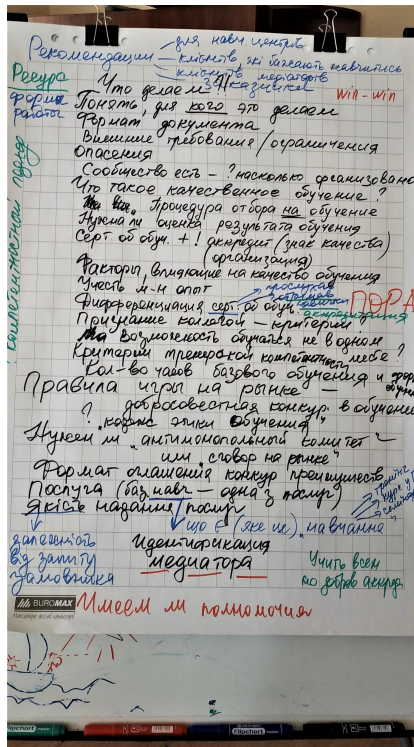 Рекомендации
для навч. центрів
клієнтів, які бажають навчитись
клієнтів медіаторів
заказчики
Ресурс
формы
работы
Компетентностный подход
win-win
Что делаем?
Понять, для кого это делаем
Формат документа
Внешние требования/ограничения
Опасения
Сообщество есть - ? насколько организовано
Что такое качественное обучение?
Процедура отбора на обучение
Нужна ли оценка результата обучения
Серт. об обуч. + ! аккредит (знак качества)
(организации)
Факторы, влияющие на качество обучения
Учесть м-н опыт
Дифференциация серт. об обуч.
прослушал
ПОРА
аккредитация
Признание коллегой - критерии?
Возможность обучаться не в одном месте?
Критерии тренерской компетентности
Кол-во часов базового обучения и
Правила игры на рынке -
? добросовестная конкур. в обучение
"кодекс этики обучения"
Нужен ли "антимонопольный комитет" -
или "сговор на рынке"
Формат оглашения конкур преимуществ
Послуга (баз навч - одна з послуг)
Якість надання послуг
що є (яке це) "навчання"
залежність
від запиту
замовника
Идентификация
медиатора
Учить всем
по добров аккред.
BUROMAX
Имеем ли полномочия
Flipchart marker
Flipchart